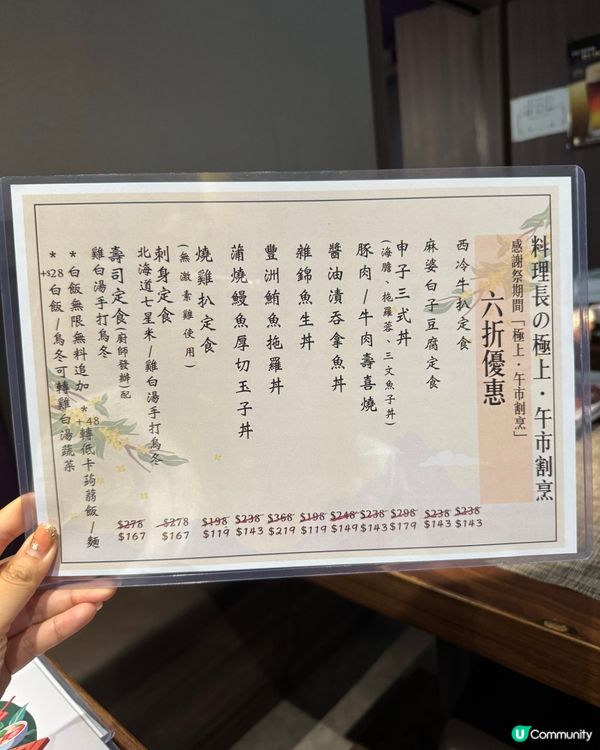 料理長の極上・午市割烹
感謝祭期間「極上・午市割烹」
六折優惠
西冷牛扒定食
$238
$143
麻婆白子豆腐定食
$238
$143
申子三式丼
(海膽、拖羅蓉、三文魚子丼)
$298
$179
豚肉/牛肉壽喜燒
$238
$143
醬油漬吞拿魚丼
$248
$149
雜錦魚生丼
$198
$119
豐洲鮪魚拖羅丼
$368
$219
蒲燒鰻魚厚切玉子丼
$238
$143
燒雞扒定食
(無激素雞使用)
$198
$119
刺身定食
北海道七星米/雞白湯手打烏冬
$278
$167
壽司定食(廚師發辦)配
雞白湯手打烏冬
$278
$167
*白飯無限無料追加
*+48轉低卡蒟蒻飯/麵
*+$28白飯/烏冬可轉雞白湯蔬菜
U Community